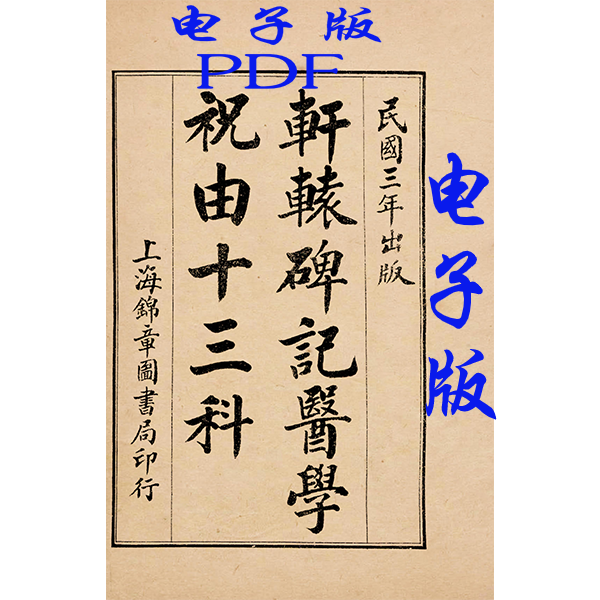 电子版
PDF
民國三年出版
軒轅碑記醫學
祝由十三科
上海錦章圖書局印行
电子版